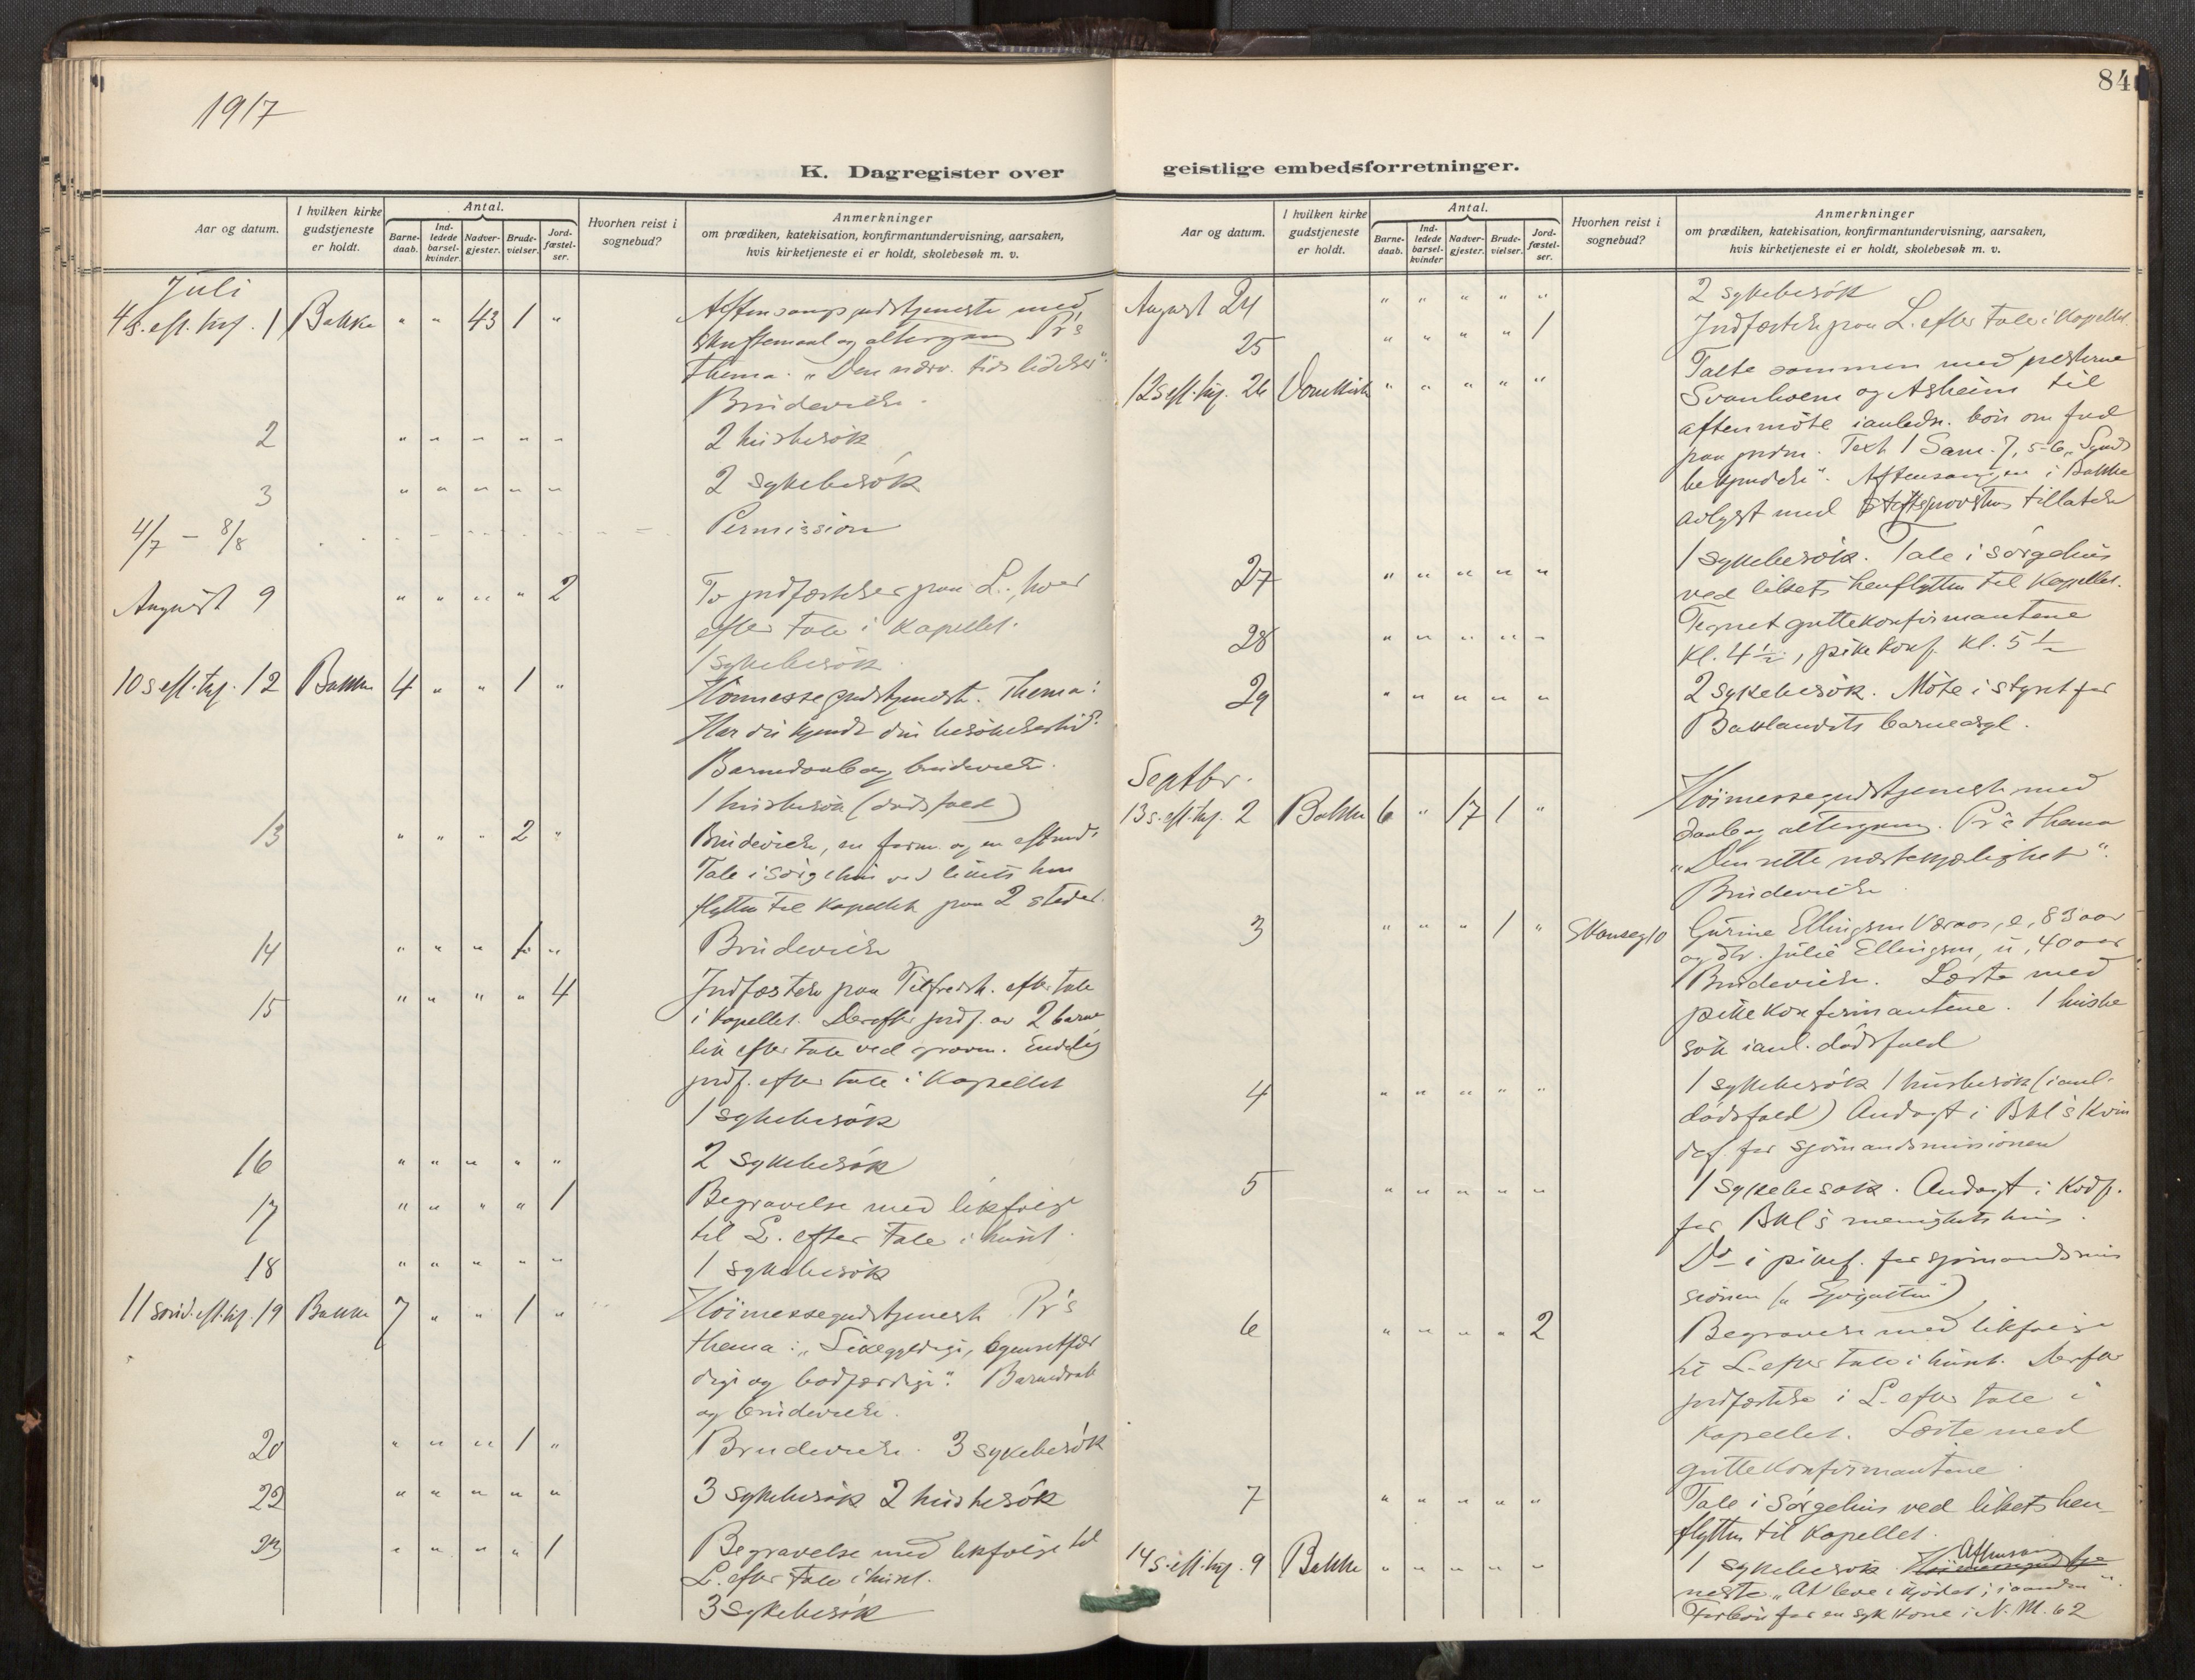 1917
84
K. Dagregister over geistlige embedsforretninger.
Aar og datum.
I hvilken kirke gudstjeneste er holdt.
Antal.
Barnedaab.
Indledede barselkvinder.
Nadvergjester.
Brudevielser.
Jordfæstelser.
Hvorhen reist i sognebud?
Anmerkninger
om prædiken, katekisation, konfirmantundervisning, aarsaken,
hvis kirketjeneste ei er holdt, skolebesøk m. v.
Juli
4 s. eft. trf. 1 Bakke " " 43 1 " Aftensangsgudstjeneste med
skriftemaal og altergang Pr's
thema: "Den nærv. tids lidelser".
Brudevielse.
2 " " " " " 2 husbesök
3 " " " " " 2 sykebesök
4/7 – 8/8 Permission
August 9 " " " " 2 To jordfæstelser paa L., hver
efter tale i kapellet.
1 sykebesök
10 s eft. trf. 12 Bakke 4 " " 1 " Höimessegudstjeneste. Thema:
Har du kjendt din besökelsestid?
Barnedaab og brudevielse.
1 husbesök (dödsfald)
13 " " " 2 " Brudevielse, en form. og en efterm.
Tale i sörgehus ved likets hen
flytten til kapellet paa 2 steder.
14 " " " 1 " Brudevielse
15 " " " " 4 Jordfæstelse paa Tilfredsh. efter tale
i kapellet. Derefter jordf. av 2 barne
lik efter tale ved graven. Endelig
jordf. efter tale i kapellet
1 sykebesök
16 " " " " " 2 sykebesök
17 " " " " 1 Begravelse med likfölge
til L. efter tale i huset.
18 " " " " " 1 sykebesök
11 sönd. eft. trf. 19 Bakke 7 " " 1 " Höimessegudstjeneste Pr's
thema: "Likegyldige, egenretfær
dige og bodfærdige". Barnedaab
og brudevielse.
20 " " " 1 " Brudevielse. 3 sykebesök
22 " " " " " 3 sykebesök 2 husbesök
23 " " " " 1 Begravelse med likfölge til
L. efter tale i huset.
3 sykebesök
Aar og datum.
I hvilken kirke gudstjeneste er holdt.
Antal.
Barnedaab.
Indledede barselkvinder
Nadvergjester.
Brudevielser.
Jordfæstelser.
Hvorhen reist i sognebud?
Anmerkninger
om prædiken, katekisation, konfirmantundervisning, aarsaken,
hvis kirketjeneste ei er holdt, skolebesøk m. v.
August 24 " " " " " 2 sykebesök
25 " " " " 1 Jordfæstelse paa L. efter tale i kapellet.
12 s eft. trf. 26 Domkirk " " " " " Talte sammen med presterne
Svanholm og Asheim til
aftenmöte i anledn. bön om fred
paa jorden. Text 1 Sam. 7, 5-6, "Synds
bekjendelse". Aftensangen i Bakke
avlyst med stiftsprovstens tillatelse
27 " " " " " 1 sykebesök. Tale i sörgehus
ved likets henflytten til kapellet.
28 " " " " " Tegnet guttekonfirmantene
kl. 4 1/2, pikekonf. kl. 5 1/2
29 " " " " " 2 sykebesök. Möte i styret for
Baklandets barneasyl.
Septbr.
13 s. eft. trf. 2 Bakke 6 " 17 1 " Höimessegudstjeneste med
daab og altergang. Pr's thema
"Den rette næstekjærlighet".
Brudevielse.
3 " " " 1 " Skanseg 10 Gurine Ellingsen Væraas, e, 83 aar
og dtr. Julie Ellingsen, u, 40 aar
1 Brudevielse. Læste med
pikekonfirmantene. 1 husbe
sök i anl. dödsfald
4 " " " " " 1 sykebesök 1 husbesök (i anl.
dödsfald) Andagt i Bkl's Kvin
def. for sjömandsmissionen
5 " " " " " 1 sykebesök. Andagt i Kvdf.
for Bkl's menighets hus.
Do i pikef. for sjömandsmis
sionen
6 " " " " 2 Begravelse med likfölge
til L. efter tale i huset. Derefter
jordfæstelse i L. efter tale i
kapellet. Læste med
guttekonfirmantene.
7 " " " " " Tale i sörgehus ved likets hen-
flytten til kapellet.
14 s. eft. trf. 9 Bakke " " " " " 1 sykebesök. Aftensang
neste "At leve i kjödet, i aanden".
Forbön for en syk kone i N. M. 62